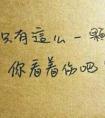 只有這么一顆
你看着伤吧